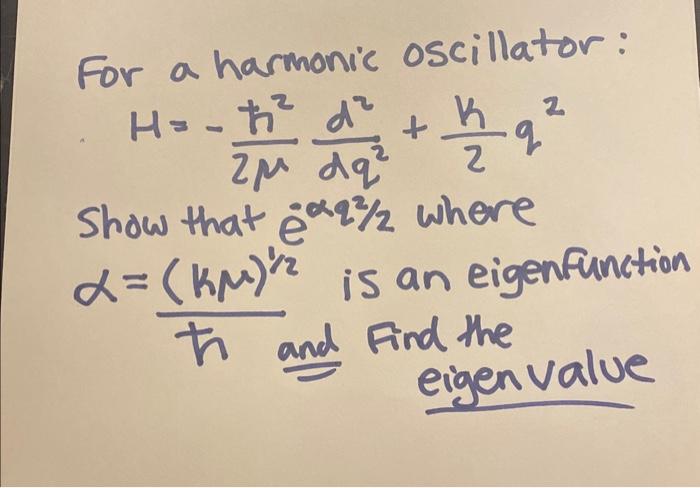 For a harmonic oscillator:
H = - ħ²/2μ d²/dq² + k/2 q²
Show that e^-αq²/2 where
α = (kμ)^1/2 / ħ is an eigenfunction
and Find the
eigenvalue